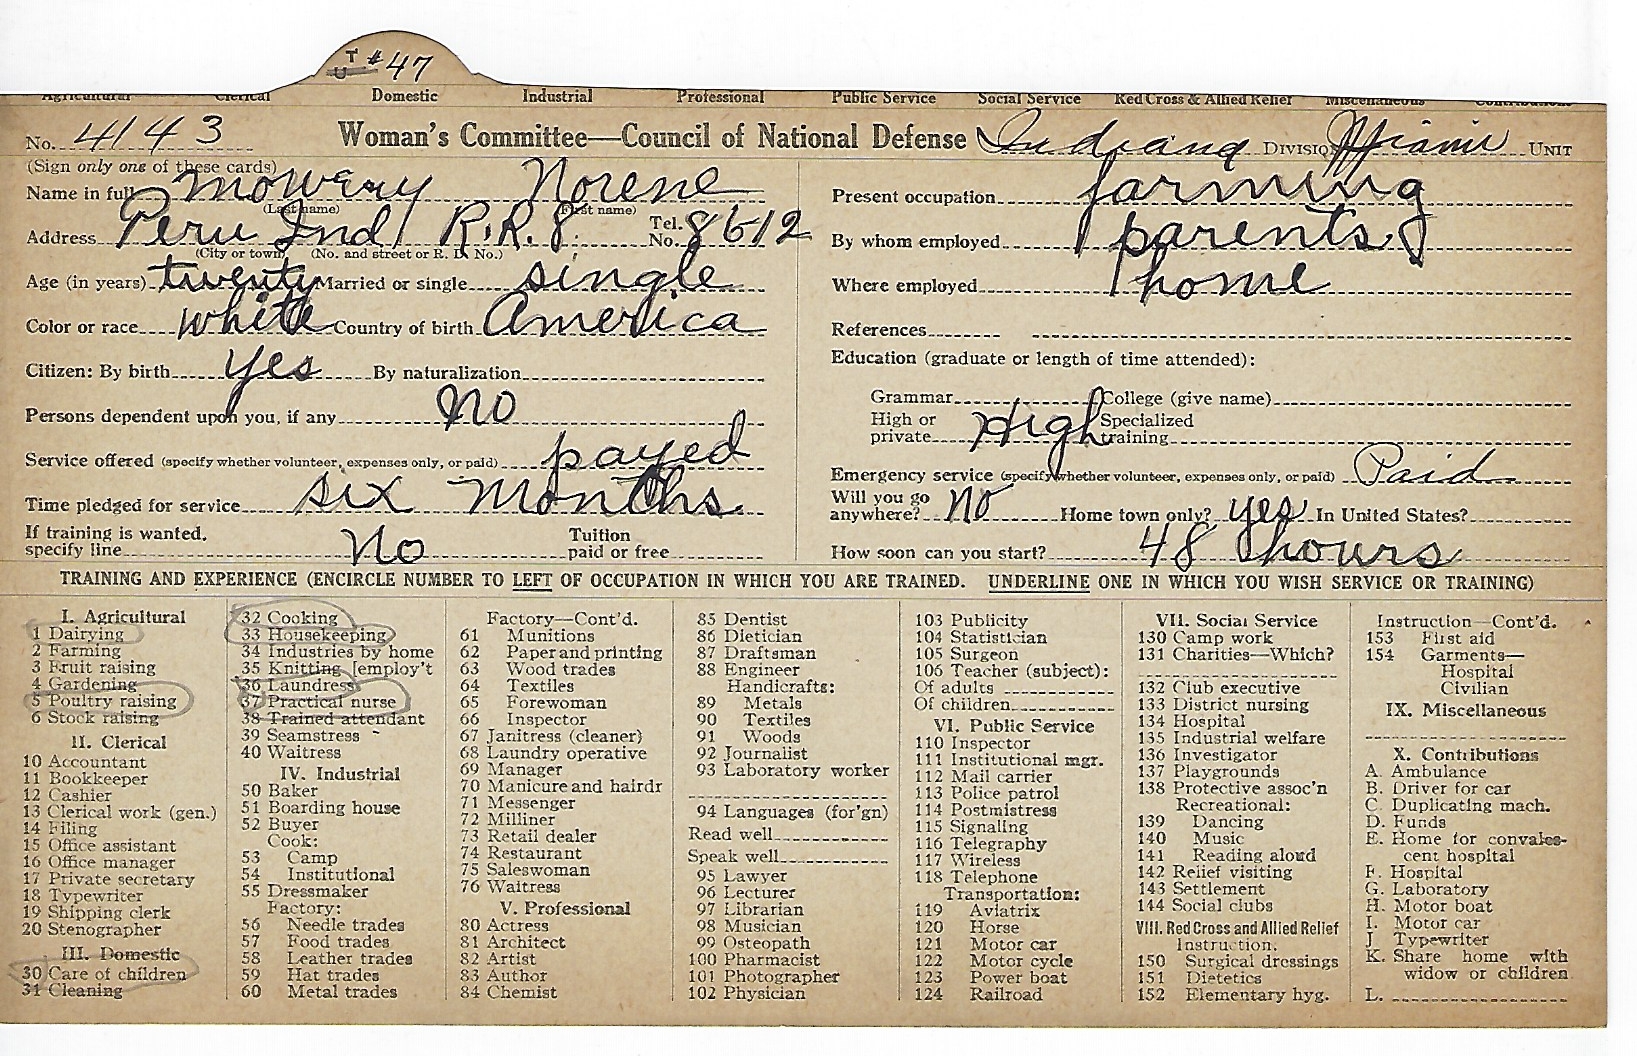 T U #47
Agricultural Clerical Domestic Industrial Professional Public Service Social Service Red Cross & Allied Relief Miscellaneous Contributions
No. 4143 Woman's Committee—Council of National Defense Indiana DIVISION Miami UNIT
(Sign only one of these cards)
Name in full Mowery Norene
(Last name) (First name)
Address Peru Ind R.R. 8. Tel. No. 8612
(City or town) (No. and street or R. D. No.)
Age (in years) twenty Married or single single
Color or race white Country of birth America
Citizen: By birth yes By naturalization
Persons dependent upon you, if any No
Service offered (specify whether volunteer, expenses only, or paid) payed
Time pledged for service six months
If training is wanted, specify line No Tuition paid or free
Present occupation farming
By whom employed parents
Where employed home
References
Education (graduate or length of time attended):
Grammar College (give name)
High or private High Specialized training
Emergency service (specify whether volunteer, expenses only, or paid) Paid
Will you go anywhere? No Home town only? yes In United States?
How soon can you start? 48 hours
TRAINING AND EXPERIENCE (ENCIRCLE NUMBER TO LEFT OF OCCUPATION IN WHICH YOU ARE TRAINED. UNDERLINE ONE IN WHICH YOU WISH SERVICE OR TRAINING)
I. Agricultural
1 Dairying
2 Farming
3 Fruit raising
4 Gardening
5 Poultry raising
6 Stock raising
II. Clerical
10 Accountant
11 Bookkeeper
12 Cashier
13 Clerical work (gen.)
14 Filing
15 Office assistant
16 Office manager
17 Private secretary
18 Typewriter
19 Shipping clerk
20 Stenographer
III. Domestic
30 Care of children
31 Cleaning
32 Cooking
33 Housekeeping
34 Industries by home
35 Knitting [employ't
36 Laundress
37 Practical nurse
38 Trained attendant
39 Seamstress
40 Waitress
IV. Industrial
50 Baker
51 Boarding house
52 Buyer
Cook:
53 Camp
54 Institutional
55 Dressmaker
Factory:
56 Needle trades
57 Food trades
58 Leather trades
59 Hat trades
60 Metal trades
Factory—Cont'd.
61 Munitions
62 Paper and printing
63 Wood trades
64 Textiles
65 Forewoman
66 Inspector
67 Janitress (cleaner)
68 Laundry operative
69 Manager
70 Manicure and hairdr
71 Messenger
72 Milliner
73 Retail dealer
74 Restaurant
75 Saleswoman
76 Waitress
V. Professional
80 Actress
81 Architect
82 Artist
83 Author
84 Chemist
85 Dentist
86 Dietician
87 Draftsman
88 Engineer
Handicrafts:
89 Metals
90 Textiles
91 Woods
92 Journalist
93 Laboratory worker
94 Languages (for'gn)
Read well
Speak well
95 Lawyer
96 Lecturer
97 Librarian
98 Musician
99 Osteopath
100 Pharmacist
101 Photographer
102 Physician
103 Publicity
104 Statistician
105 Surgeon
106 Teacher (subject):
Of adults
Of children
VI. Public Service
110 Inspector
111 Institutional mgr.
112 Mail carrier
113 Police patrol
114 Postmistress
115 Signaling
116 Telegraphy
117 Wireless
118 Telephone
Transportation:
119 Aviatrix
120 Horse
121 Motor car
122 Motor cycle
123 Power boat
124 Railroad
VII. Social Service
130 Camp work
131 Charities—Which?
132 Club executive
133 District nursing
134 Hospital
135 Industrial welfare
136 Investigator
137 Playgrounds
138 Protective assoc'n
Recreational:
139 Dancing
140 Music
141 Reading aloud
142 Relief visiting
143 Settlement
144 Social clubs
VIII. Red Cross and Allied Relief
Instruction.
150 Surgical dressings
151 Dietetics
152 Elementary hyg.
Instruction—Cont'd.
153 First aid
154 Garments—
Hospital
Civilian
IX. Miscellaneous
X. Contributions
A. Ambulance
B. Driver for car
C. Duplicating mach.
D. Funds
E. Home for convales-
cent hospital
F. Hospital
G. Laboratory
H. Motor boat
I. Motor car
J Typewriter
K. Share home with
widow or children
L.